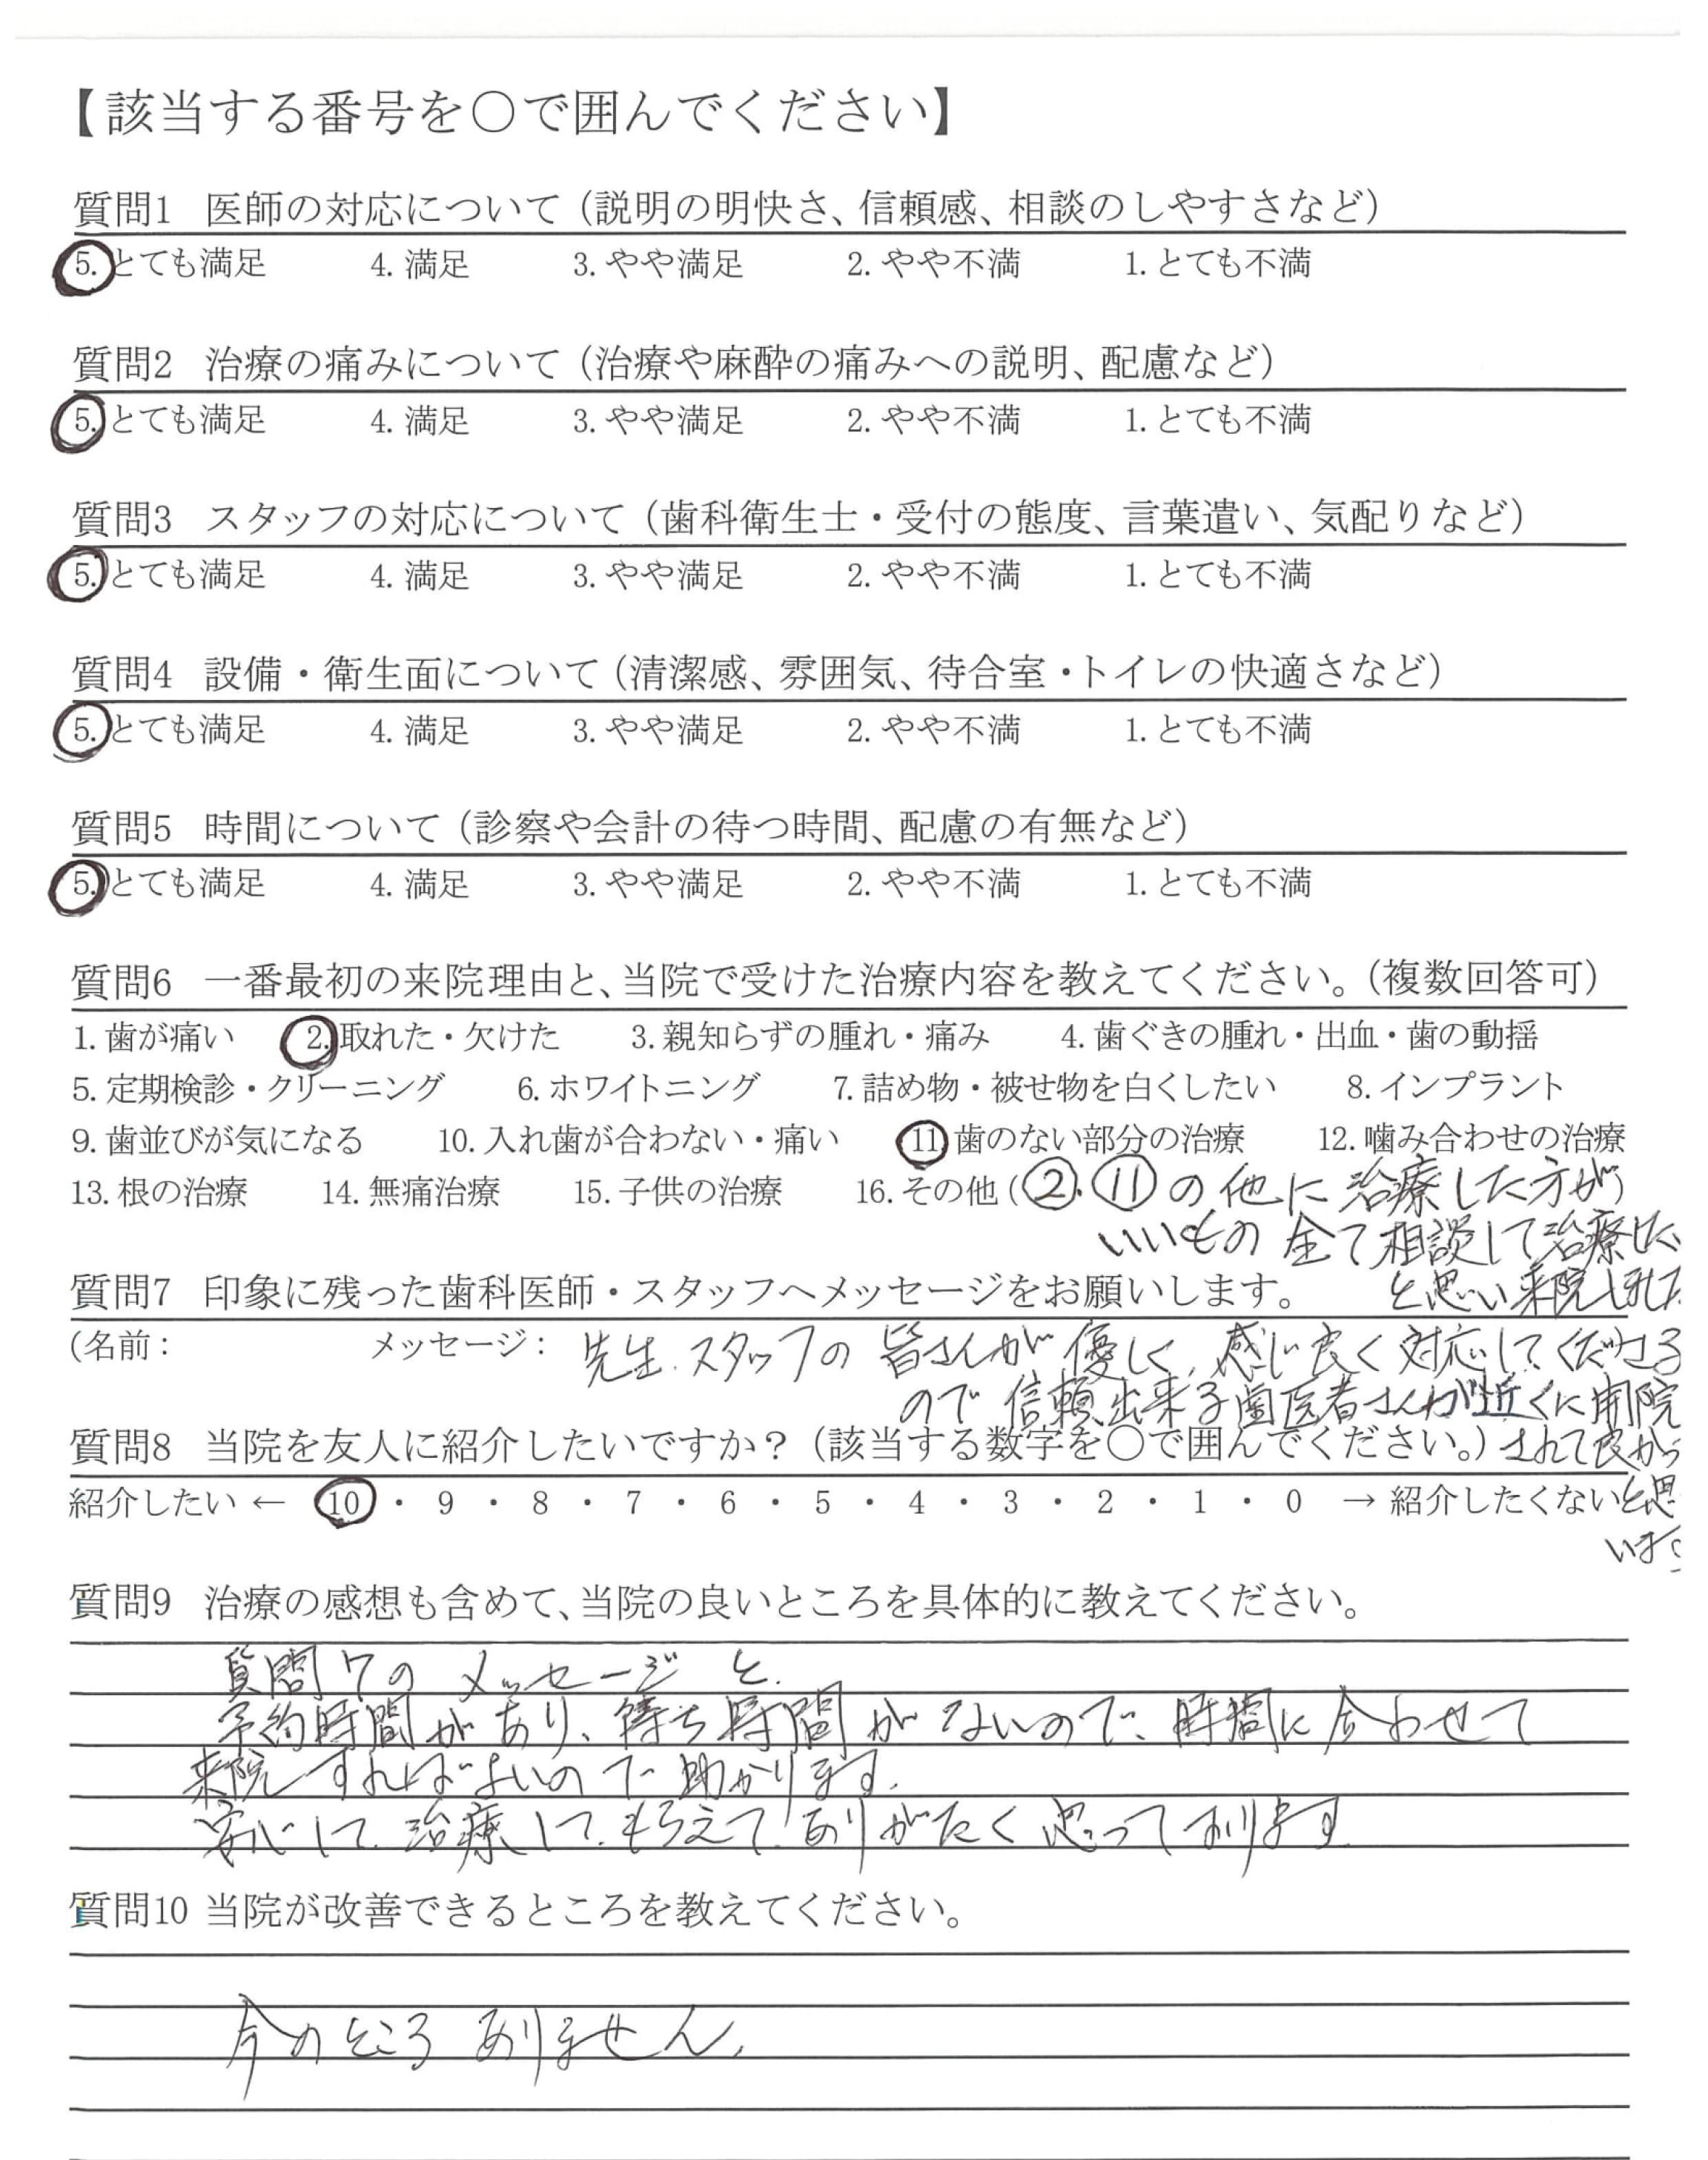 【該当する番号を○で囲んでください】
質問1 医師の対応について（説明の明快さ、信頼感、相談のしやすさなど）
5. とても満足 4. 満足 3. やや満足 2. やや不満 1. とても不満
質問2 治療の痛みについて（治療や麻酔の痛みへの説明、配慮など）
5. とても満足 4. 満足 3. やや満足 2. やや不満 1. とても不満
質問3 スタッフの対応について（歯科衛生士・受付の態度、言葉遣い、気配りなど）
5. とても満足 4. 満足 3. やや満足 2. やや不満 1. とても不満
質問4 設備・衛生面について（清潔感、雰囲気、待合室・トイレの快適さなど）
5. とても満足 4. 満足 3. やや満足 2. やや不満 1. とても不満
質問5 時間について（診察や会計の待つ時間、配慮の有無など）
5. とても満足 4. 満足 3. やや満足 2. やや不満 1. とても不満
質問6 一番最初の来院理由と、当院で受けた治療内容を教えてください。（複数回答可）
1. 歯が痛い 2. 取れた・欠けた 3. 親知らずの腫れ・痛み 4. 歯ぐきの腫れ・出血・歯の動揺
5. 定期検診・クリーニング 6. ホワイトニング 7. 詰め物・被せ物を白くしたい 8. インプラント
9. 歯並びが気になる 10. 入れ歯が合わない・痛い 11 歯のない部分の治療 12. 噛み合わせの治療
13. 根の治療 14. 無痛治療 15. 子供の治療 16. その他（②.⑪の他に治療した方が）
いいもの全て相談して治療した
と思い来院しました
質問7 印象に残った歯科医師・スタッフへメッセージをお願いします。
(名前： メッセージ： 先生、スタッフの皆さんが優しく、感じ良く対応してくださる
ので信頼出来る歯医者さんが近くに開院
されて良かっ
質問8 当院を友人に紹介したいですか？（該当する数字を○で囲んでください。）
紹介したい ← 10 ・ 9 ・ 8 ・ 7 ・ 6 ・ 5 ・ 4 ・ 3 ・ 2 ・ 1 ・ 0 → 紹介したくない
と思
います。
質問9 治療の感想も含めて、当院の良いところを具体的に教えてください。
質問7のメッセージと、
予約時間があり、待ち時間がないので、時間に合わせて
来院すればよいので助かります。
安心して治療してもらえてありがたく思っております
質問10 当院が改善できるところを教えてください。
今のところありません。